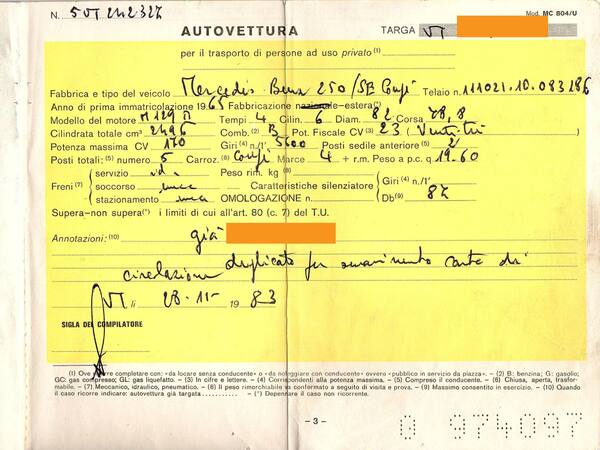 N. 507242327
Mod. MC 804/U
AUTOVETTURA TARGA VT
per il trasporto di persone ad uso privato (1)
Fabbrica e tipo del veicolo Mercedes Benz 250/SE Coupé Telaio n. 111021.10.083286
Anno di prima immatricolazione 1965 Fabbricazione nazionale-estera (*)
Modello del motore M129 Tempi 4 Cilin. 6 Diam. 82 Corsa 78,8
Cilindrata totale cm³ 2496 Comb. (2) B Pot. Fiscale CV (3) 23 (Ventitrè)
Potenza massima CV 170 Giri (4) n./1' 5600 Posti sedile anteriore (5) 2
Posti totali: (5) numero 5 Carroz. (6) Coupé Marce 4 + r.m. Peso a p.c. q. 19.60
Freni (7) servizio id. Peso rim. kg (8) Caratteristiche silenziatore Giri (4) n./1'
soccorso mecc
stazionamento mecc OMOLOGAZIONE n. Db (9) 82
Supera-non supera (*) i limiti di cui all'art. 80 (c. 7) del T.U.
Annotazioni: (10) già
duplicato per smarrimento carta di
circolazione
VT li 28-11- 1983
SIGLA DEL COMPILATORE
(1) Ove occorre completare con: «da locare senza conducente» o «da noleggiare con conducente» ovvero «pubblico in servizio da piazza». - (2) B: benzina; G: gasolio;
GC: gas compresso; GL: gas liquefatto. - (3) In cifre e lettere. - (4) Corrispondenti alla potenza massima. - (5) Compreso il conducente. - (6) Chiusa, aperta, trasfor-
mabile. - (7) Meccanico, idraulico, pneumatico. - (8) Il peso rimorchiabile va conformato a seguito di visita e prova. - (9) Massimo consentito in esercizio. - (10) Quando
il caso ricorre indicare: autovettura già targata........... - (*) Depennare il caso non ricorrente.
- 3 -
0 974097